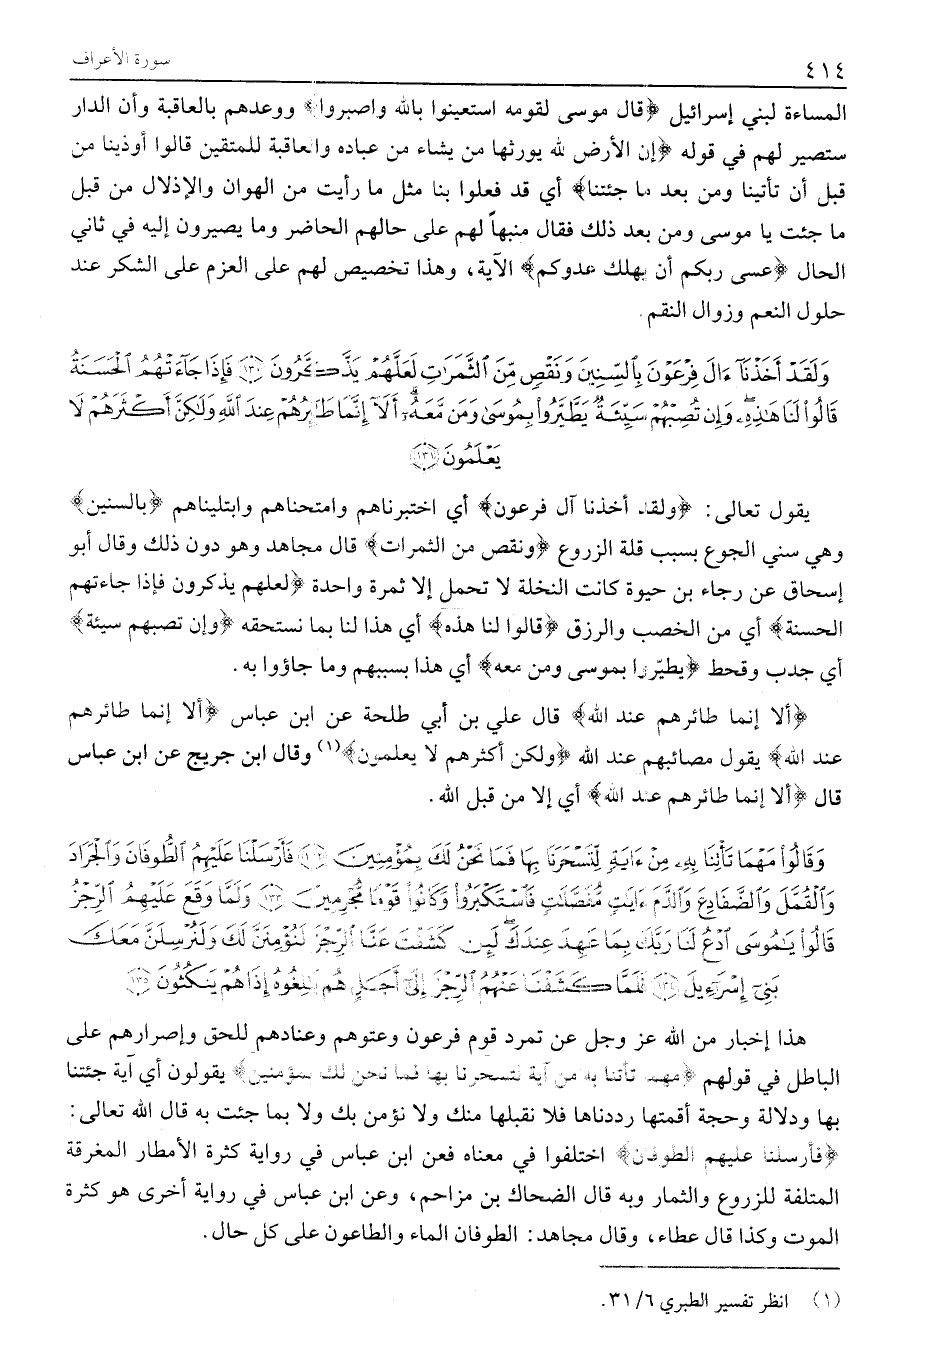 ٤١٤
سورة الأعراف
المساءة لبني إسرائيل ﴿قال موسى لقومه استعينوا بالله واصبروا﴾ ووعدهم بالعاقبة وأن الدار
ستصير لهم في قوله ﴿إن الأرض لله يورثها من يشاء من عباده والعاقبة للمتقين قالوا أوذينا من
قبل أن تأتينا ومن بعد ما جئتنا﴾ أي قد فعلوا بنا مثل ما رأيت من الهوان والإذلال من قبل
ما جئت يا موسى ومن بعد ذلك فقال منبهاً لهم على حالهم الحاضر وما يصيرون إليه في ثاني
الحال ﴿عسى ربكم أن يهلك عدوكم﴾ الآية، وهذا تخصيص لهم على العزم على الشكر عند
حلول النعم وزوال النقم.
وَلَقَدْ أَخَذْنَآ ءَالَ فِرْعَوْنَ بِٱلسِّنِينَ وَنَقْصٍ مِّنَ ٱلثَّمَرَٰتِ لَعَلَّهُمْ يَذَّكَّرُونَ ﴿١٣٠﴾ فَإِذَا جَآءَتْهُمُ ٱلْحَسَنَةُ
قَالُوا۟ لَنَا هَٰذِهِۦ ۖ وَإِن تُصِبْهُمْ سَيِّئَةٌ يَطَّيَّرُوا۟ بِمُوسَىٰ وَمَن مَّعَهُۥٓ ۗ أَلَآ إِنَّمَا طَٰٓئِرُهُمْ عِندَ ٱللَّهِ وَلَٰكِنَّ أَكْثَرَهُمْ لَا
يَعْلَمُونَ ﴿١٣١﴾
يقول تعالى: ﴿ولقد أخذنا آل فرعون﴾ أي اختبرناهم وامتحناهم وابتليناهم ﴿بالسنين﴾
وهي سني الجوع بسبب قلة الزروع ﴿ونقص من الثمرات﴾ قال مجاهد وهو دون ذلك وقال أبو
إسحاق عن رجاء بن حيوة كانت النخلة لا تحمل إلا ثمرة واحدة ﴿لعلهم يذكرون فإذا جاءتهم
الحسنة﴾ أي من الخصب والرزق ﴿قالوا لنا هذه﴾ أي هذا لنا بما نستحقه ﴿وإن تصبهم سيئة﴾
أي جدب وقحط ﴿يطيّروا بموسى ومن معه﴾ أي هذا بسببهم وما جاؤوا به.
﴿ألا إنما طائرهم عند الله﴾ قال علي بن أبي طلحة عن ابن عباس ﴿ألا إنما طائرهم
عند الله﴾ يقول مصائبهم عند الله ﴿ولكن أكثرهم لا يعلمون﴾(١) وقال ابن جريج عن ابن عباس
قال ﴿ألا إنما طائرهم عند الله﴾ أي إلا من قبل الله.
وَقَالُوا۟ مَهْمَا تَأْتِنَا بِهِۦ مِنْ ءَايَةٍ لِّتَسْحَرَنَا بِهَا فَمَا نَحْنُ لَكَ بِمُؤْمِنِينَ ﴿١٣٢﴾ فَأَرْسَلْنَا عَلَيْهِمُ ٱلطُّوفَانَ وَٱلْجَرَادَ
وَٱلْقُمَّلَ وَٱلضَّفَادِعَ وَٱلدَّمَ ءَايَٰتٍ مُّفَصَّلَٰتٍ فَٱسْتَكْبَرُوا۟ وَكَانُوا۟ قَوْمًا مُّجْرِمِينَ ﴿١٣٣﴾ وَلَمَّا وَقَعَ عَلَيْهِمُ ٱلرِّجْزُ
قَالُوا۟ يَٰمُوسَى ٱدْعُ لَنَا رَبَّكَ بِمَا عَهِدَ عِندَكَ ۖ لَئِن كَشَفْتَ عَنَّا ٱلرِّجْزَ لَنُؤْمِنَنَّ لَكَ وَلَنُرْسِلَنَّ مَعَكَ
بَنِىٓ إِسْرَٰٓءِيلَ ﴿١٣٤﴾ فَلَمَّا كَشَفْنَا عَنْهُمُ ٱلرِّجْزَ إِلَىٰٓ أَجَلٍ هُم بَٰلِغُوهُ إِذَا هُمْ يَنكُثُونَ ﴿١٣٥﴾
هذا إخبار من الله عز وجل عن تمرد قوم فرعون وعتوهم وعنادهم للحق وإصرارهم على
الباطل في قولهم ﴿مهما تأتنا به من آية لتسحرنا بها فما نحن لك بمؤمنين﴾ يقولون أي آية جئتنا
بها ودلالة وحجة أقمتها رددناها فلا نقبلها منك ولا نؤمن بك ولا بما جئت به قال الله تعالى:
﴿فأرسلنا عليهم الطوفان﴾ اختلفوا في معناه فعن ابن عباس في رواية كثرة الأمطار المغرقة
المتلفة للزروع والثمار وبه قال الضحاك بن مزاحم، وعن ابن عباس في رواية أخرى هو كثرة
الموت وكذا قال عطاء، وقال مجاهد: الطوفان الماء والطاعون على كل حال.
(١) انظر تفسير الطبري ٦/ ٣١.